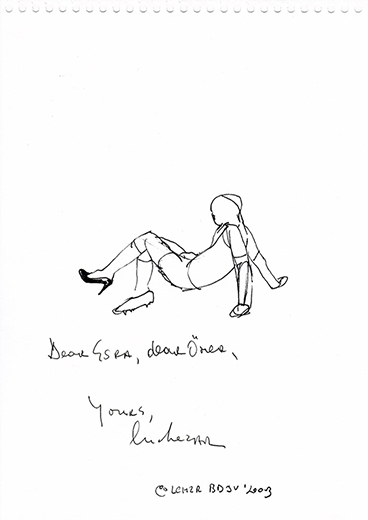 Dear Esra, dear Ömer,
Yours,
Luchezar
BDJV '2003